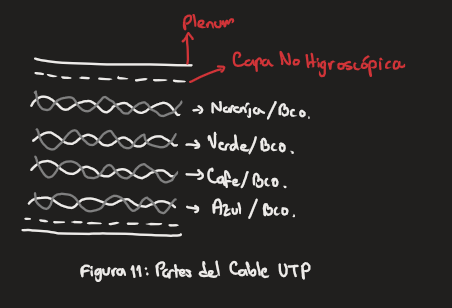 Plenum
Capa No Higroscópica
Naranja/Bco.
Verde/Bco.
Cafe/Bco.
Azul/Bco.
Figura 11: Partes del Cable UTP